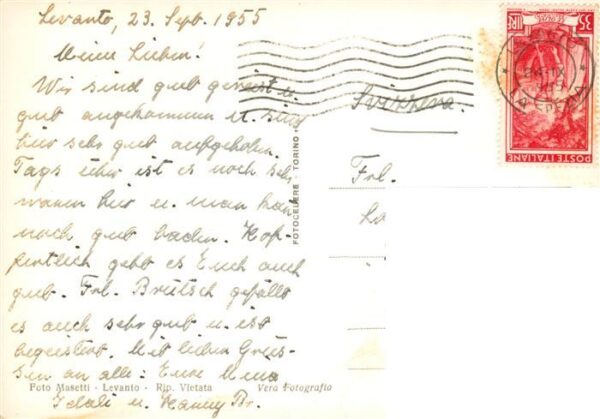 Levanto, 23. Sept. 1955
Meine Lieben!
Wir sind gut gereist u.
gut angekommen u. sind
hier sehr gut aufgehoben.
Tags über ist es noch sehr
warm hier u. man kann
noch gut baden. Hof-
fentlich geht es Euch auch
gut. Frl. Brütsch gefällt
es auch sehr gut u. ist
begeistert. Mit lieben Grüs-
sen an alle: Eure
u.
Svizzera
Frl.
FOTOCELERE - TORINO
Foto Masetti - Levanto - Rip. Vietata
Vera Fotografia
35 LIRE
POSTE ITALIANE
LA SPEZIA